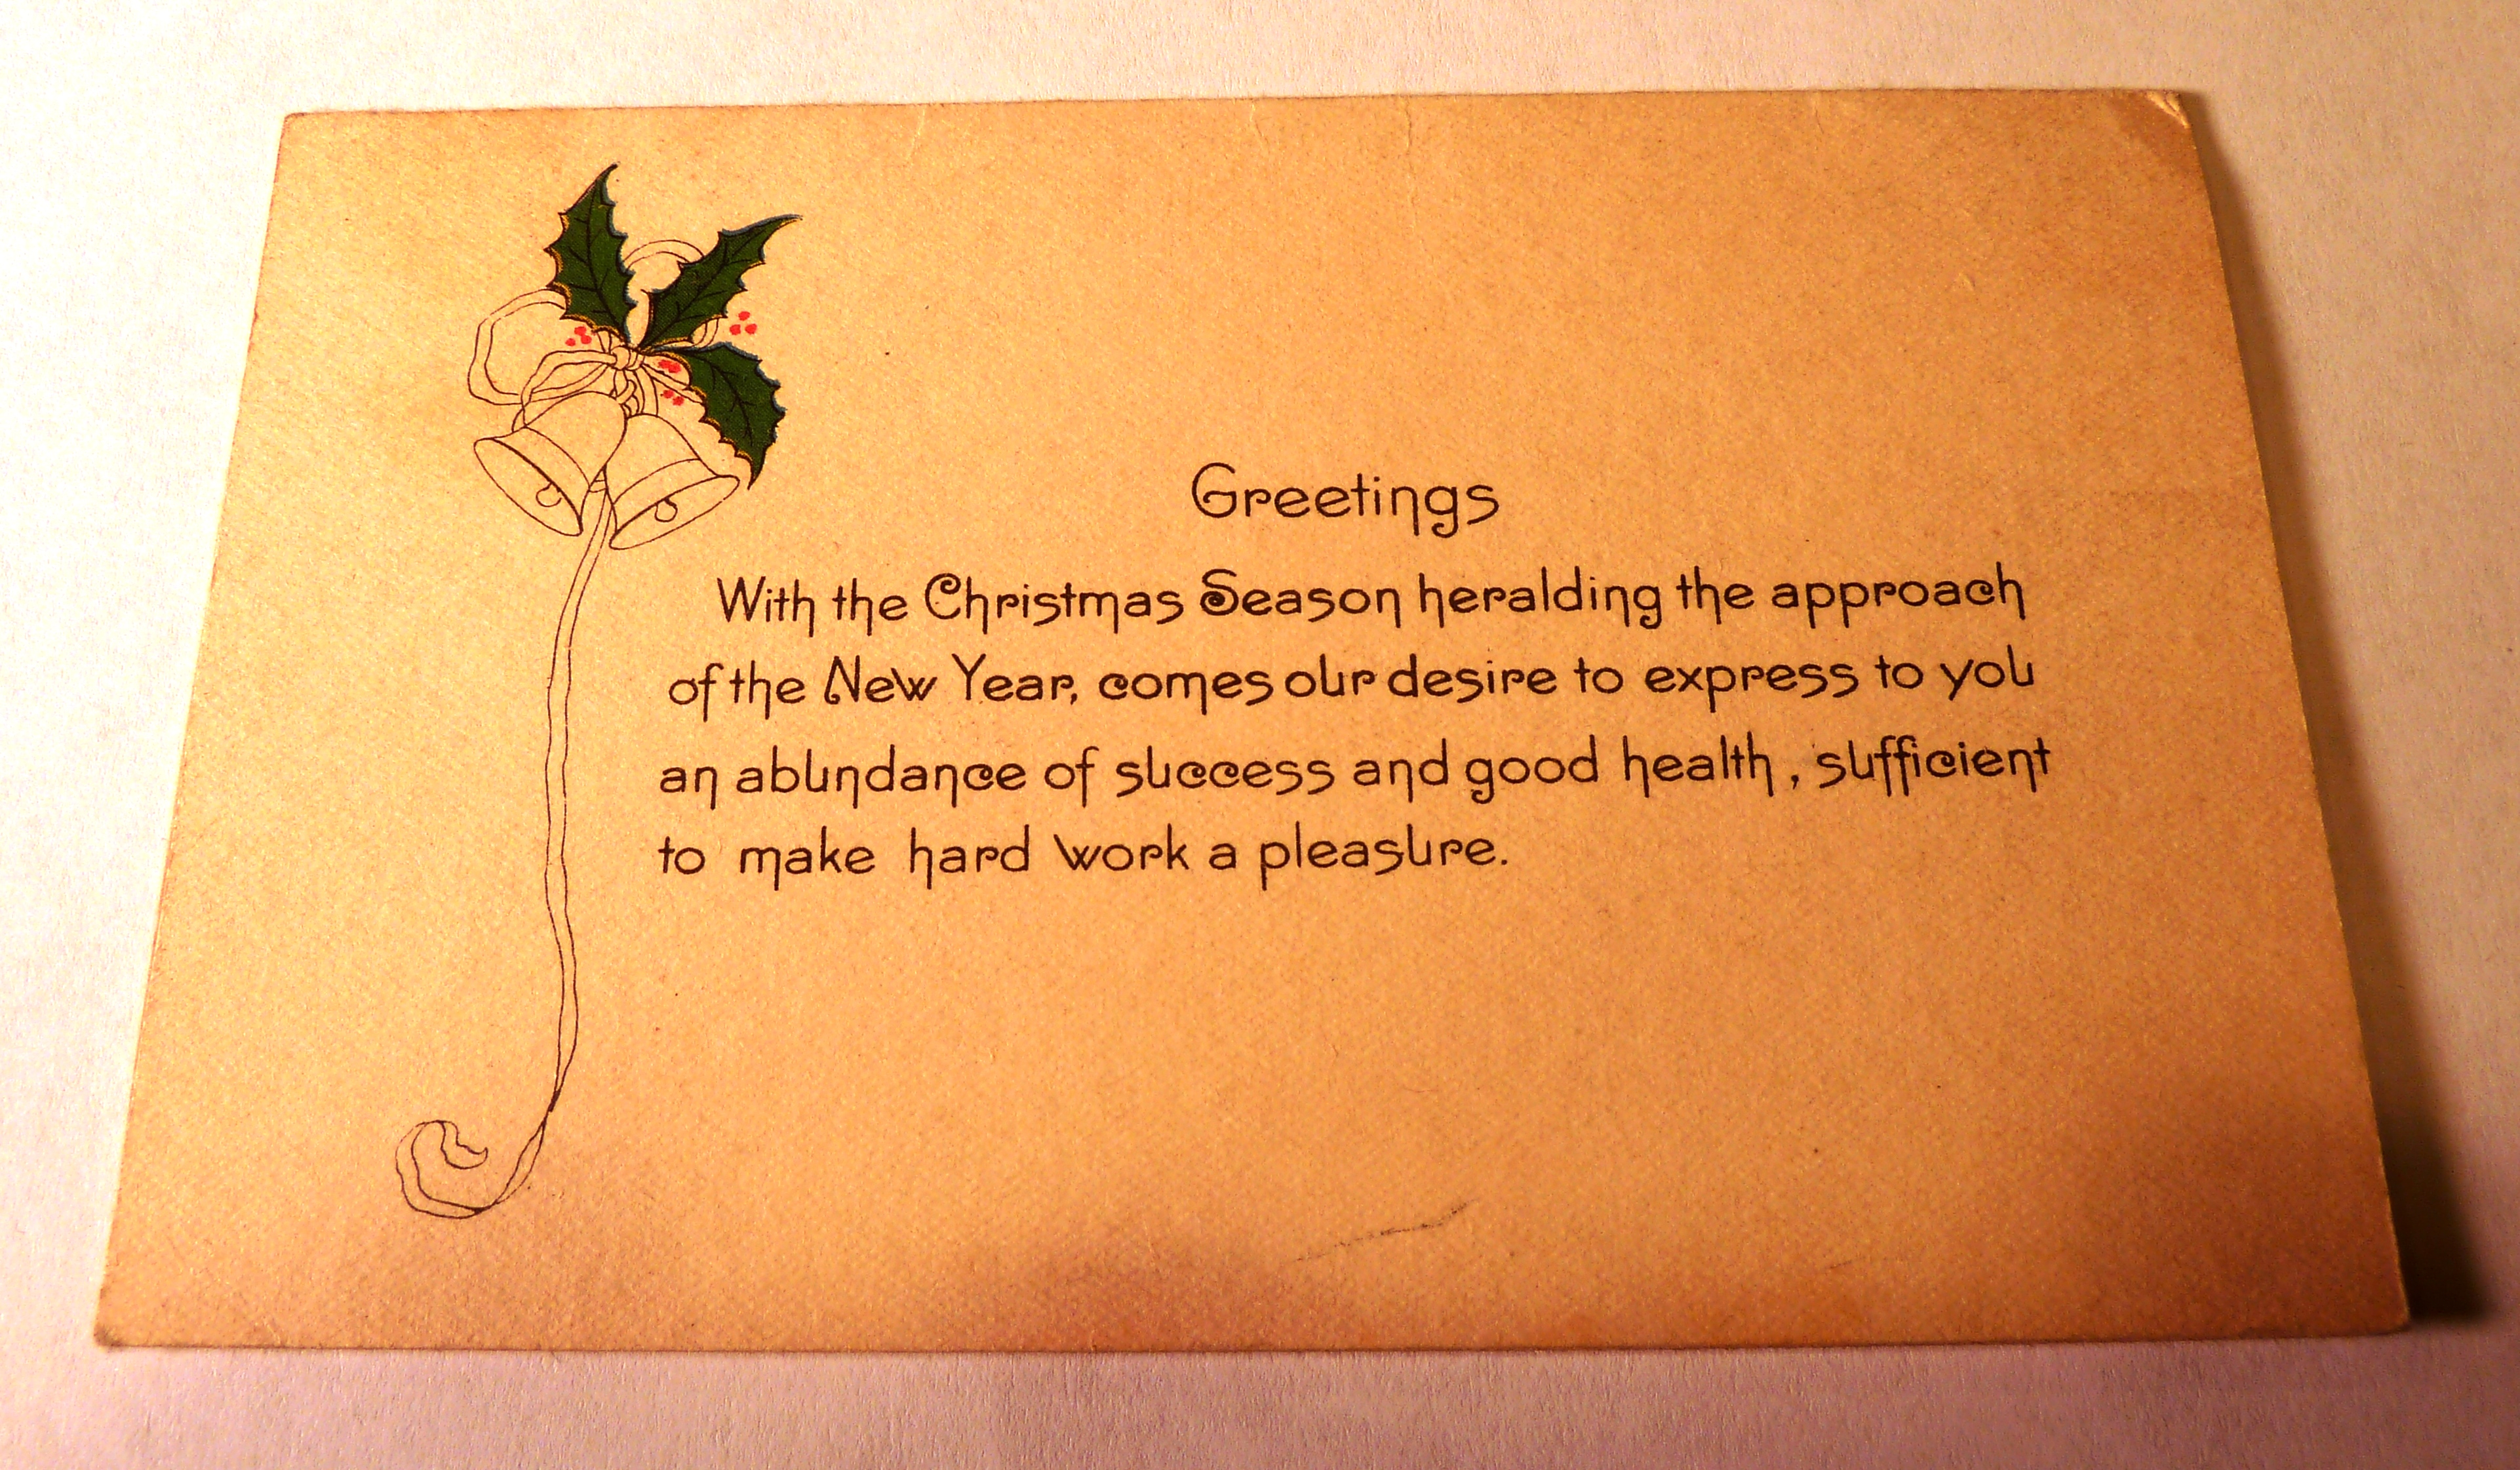 Greetings
With the Christmas Season heralding the approach
of the New Year, comes our desire to express to you
an abundance of success and good health , sufficient
to make hard work a pleasure.